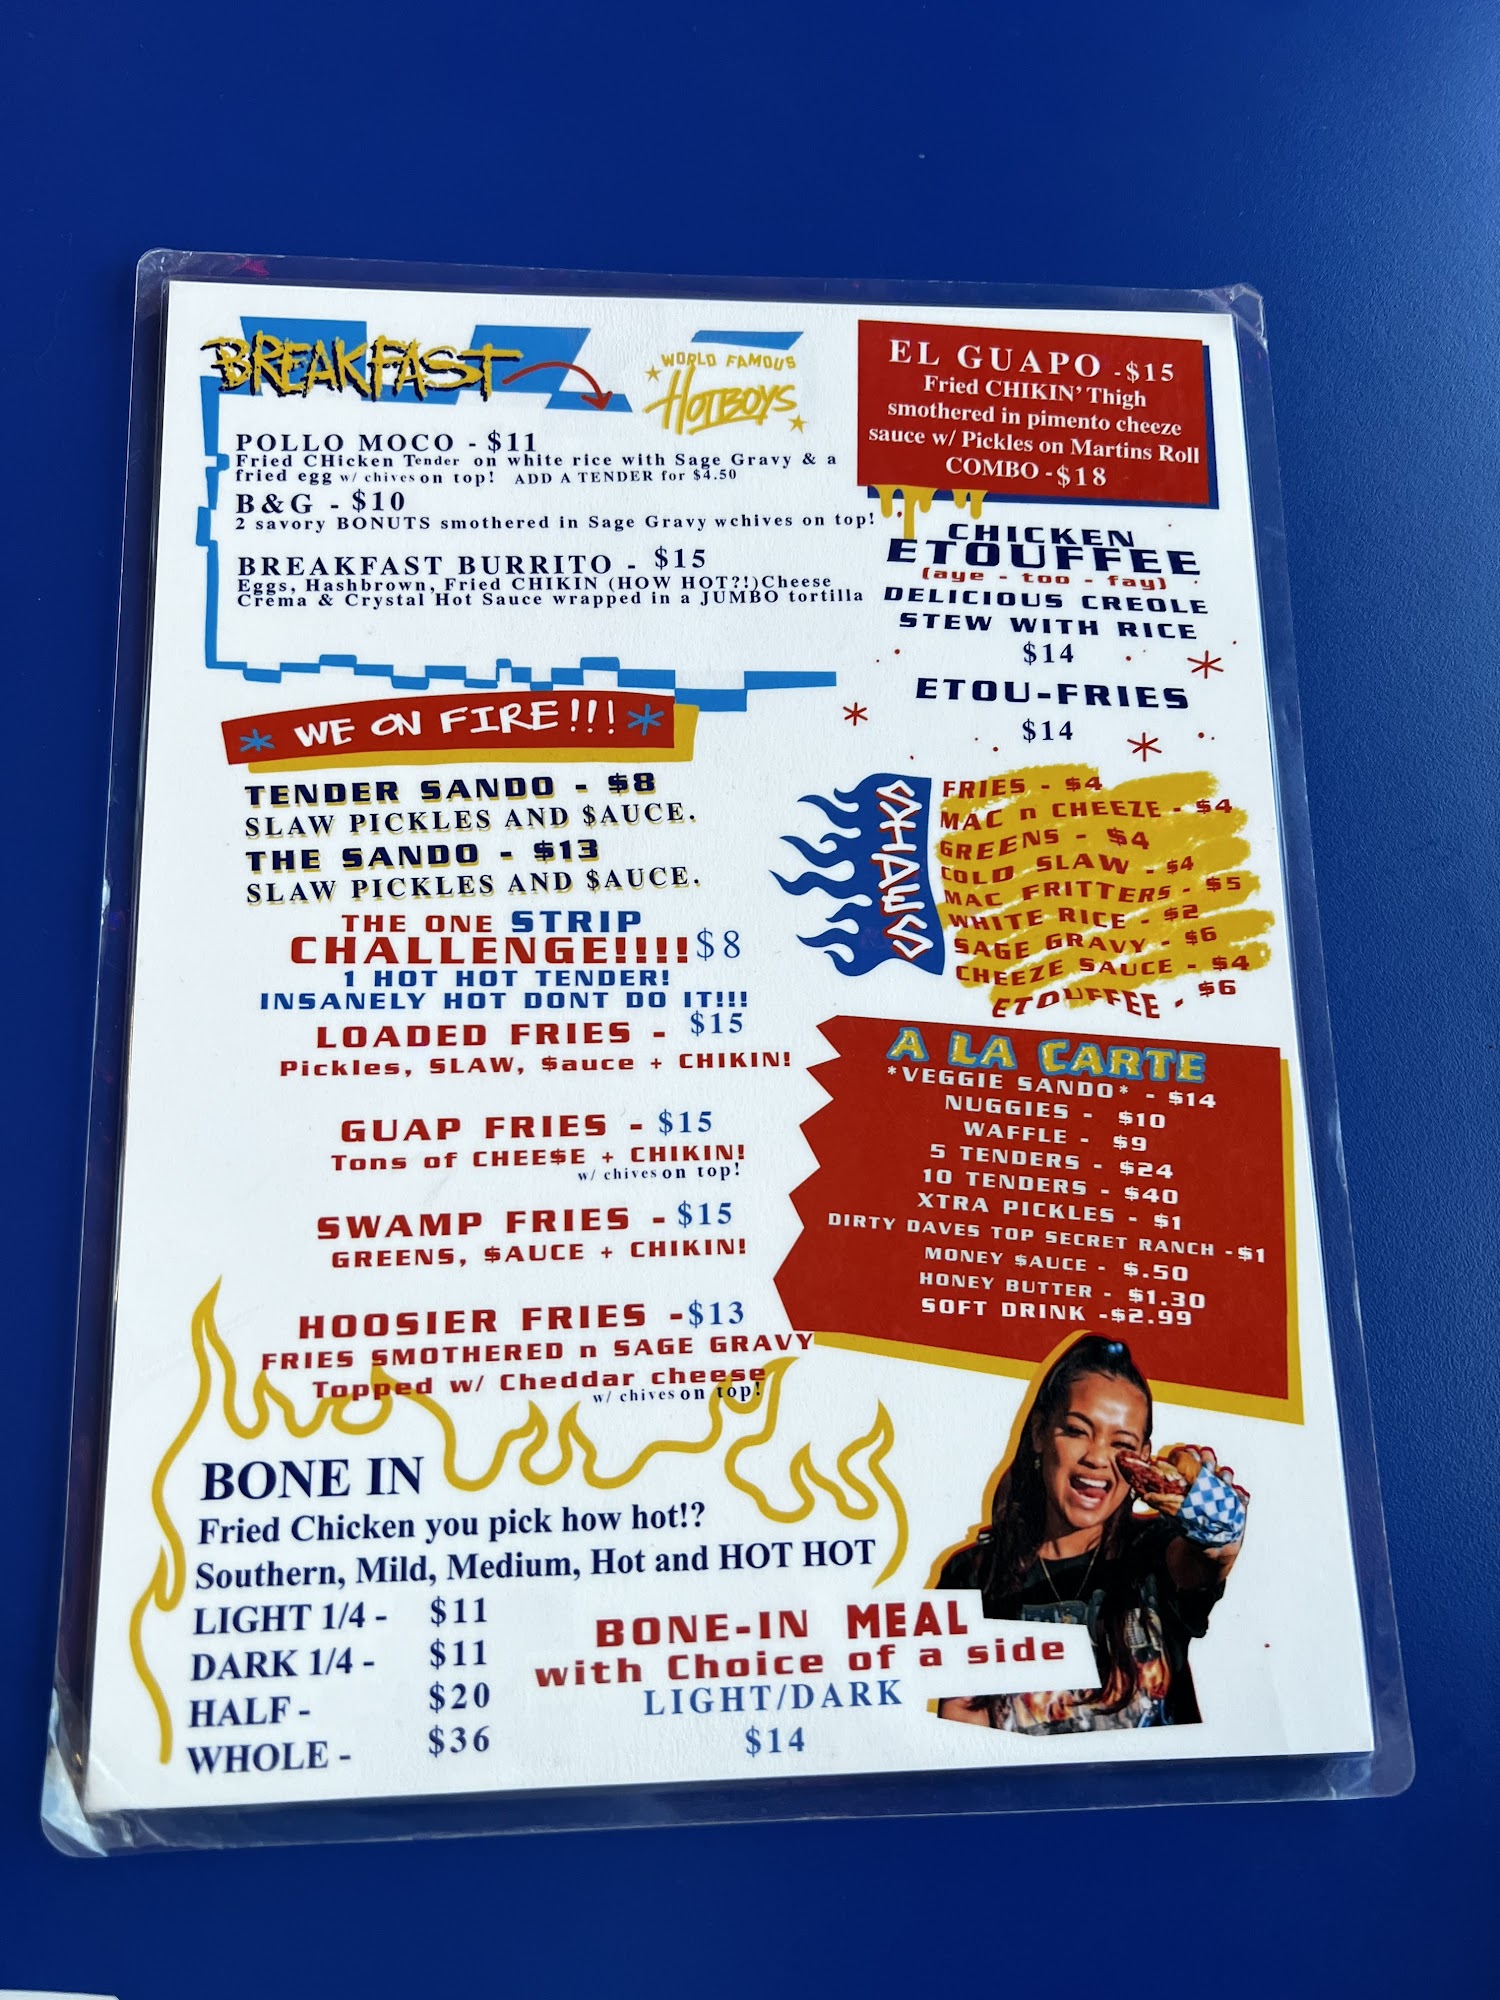 BREAKFAST
WORLD FAMOUS
HOTBOYS
POLLO MOCO - $11
Fried CHicken Tender on white rice with Sage Gravy & a
fried egg w/ chives on top! ADD A TENDER for $4.50
B&G - $10
2 savory BONUTS smothered in Sage Gravy wchives on top!
BREAKFAST BURRITO - $15
Eggs, Hashbrown, Fried CHIKIN (HOW HOT?!)Cheese
Crema & Crystal Hot Sauce wrapped in a JUMBO tortilla
EL GUAPO -$15
Fried CHIKIN' Thigh
smothered in pimento cheeze
sauce w/ Pickles on Martins Roll
COMBO -$18
CHICKEN
ETOUFFEE
(aye - too - fay)
DELICIOUS CREOLE
STEW WITH RICE
$14
ETOU-FRIES
$14
* WE ON FIRE!!! *
TENDER SANDO - $8
SLAW PICKLES AND $AUCE.
THE SANDO - $13
SLAW PICKLES AND $AUCE.
THE ONE STRIP
CHALLENGE!!!! $8
1 HOT HOT TENDER!
INSANELY HOT DONT DO IT!!!
LOADED FRIES - $15
Pickles, SLAW, $auce + CHIKIN!
GUAP FRIES - $15
Tons of CHEE$E + CHIKIN!
w/ chives on top!
SWAMP FRIES - $15
GREENS, $AUCE + CHIKIN!
HOOSIER FRIES -$13
FRIES SMOTHERED n SAGE GRAVY
Topped w/ Cheddar cheese
w/ chives on top!
SIDES
FRIES - $4
MAC n CHEEZE - $4
GREENS - $4
COLD SLAW - $4
MAC FRITTERS - $5
WHITE RICE - $2
SAGE GRAVY - $6
CHEEZE SAUCE - $4
ETOUFFEE - $6
A LA CARTE
*VEGGIE SANDO* - $14
NUGGIES - $10
WAFFLE - $9
5 TENDERS - $24
10 TENDERS - $40
XTRA PICKLES - $1
DIRTY DAVES TOP SECRET RANCH -$1
MONEY $AUCE - $.50
HONEY BUTTER - $1.30
SOFT DRINK -$2.99
BONE IN
Fried Chicken you pick how hot!?
Southern, Mild, Medium, Hot and HOT HOT
LIGHT 1/4 - $11
DARK 1/4 - $11
HALF - $20
WHOLE - $36
BONE-IN MEAL
with Choice of a side
LIGHT/DARK
$14